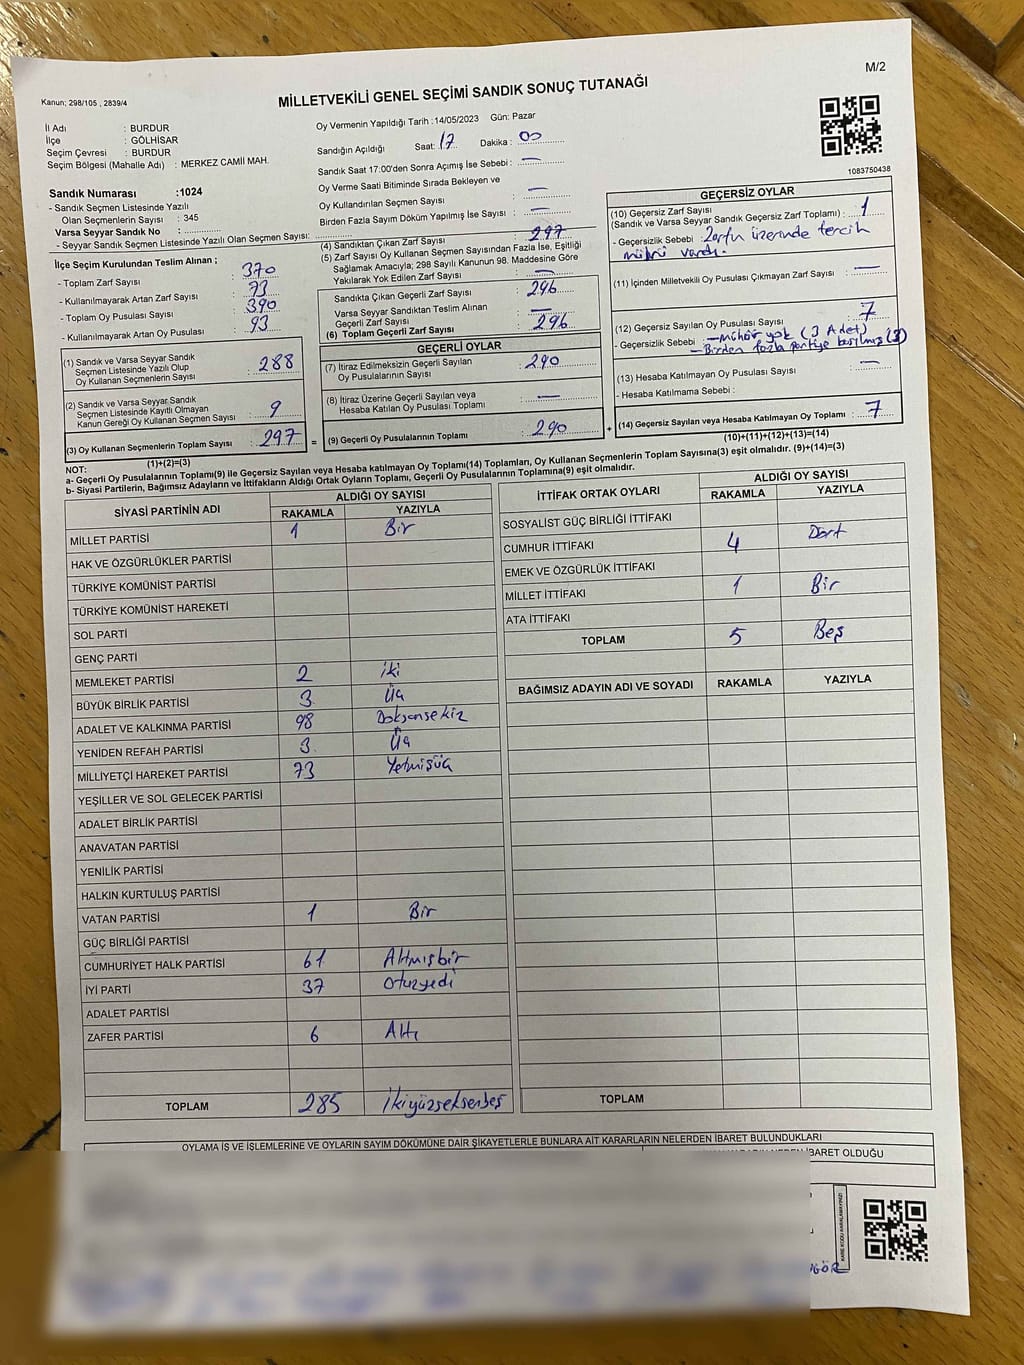 M/2
Kanun; 298/105 , 2839/4
MİLLETVEKİLİ GENEL SEÇİMİ SANDIK SONUÇ TUTANAĞI
İl Adı : BURDUR
İlçe : GÖLHİSAR
Seçim Çevresi : BURDUR
Seçim Bölgesi (Mahalle Adı) : MERKEZ CAMİİ MAH.
Sandık Numarası :1024
- Sandık Seçmen Listesinde Yazılı
Olan Seçmenlerin Sayısı : 345
Varsa Seyyar Sandık No :
- Seyyar Sandık Seçmen Listesinde Yazılı Olan Seçmen Sayısı:
İlçe Seçim Kurulundan Teslim Alınan ;
- Toplam Zarf Sayısı : 370
- Kullanılmayarak Artan Zarf Sayısı : 73
- Toplam Oy Pusulası Sayısı : 390
- Kullanılmayarak Artan Oy Pusulası : 93
(1) Sandık ve Varsa Seyyar Sandık
Seçmen Listesinde Yazılı Olup
Oy Kullanan Seçmenlerin Sayısı : 288
(2) Sandık ve Varsa Seyyar Sandık
Seçmen Listesinde Kayıtlı Olmayan
Kanun Gereği Oy Kullanan Seçmen Sayısı : 9
(3) Oy Kullanan Seçmenlerin Toplam Sayısı : 297 =
(1)+(2)=(3)
Oy Vermenin Yapıldığı Tarih :14/05/2023 Gün: Pazar
Sandığın Açıldığı Saat: 17 Dakika : 00
Sandık Saat 17:00'den Sonra Açımış İse Sebebi : —
Oy Verme Saati Bitiminde Sırada Bekleyen ve
Oy Kullandırılan Seçmen Sayısı : —
Birden Fazla Sayım Döküm Yapılmış İse Sayısı : —
(4) Sandıktan Çıkan Zarf Sayısı : 297
(5) Zarf Sayısı Oy Kullanan Seçmen Sayısından Fazla İse, Eşitliği
Sağlamak Amacıyla; 298 Sayılı Kanunun 98. Maddesine Göre
Yakılarak Yok Edilen Zarf Sayısı : —
Sandıkta Çıkan Geçerli Zarf Sayısı : 296
Varsa Seyyar Sandıktan Teslim Alınan
Geçerli Zarf Sayısı : —
(6) Toplam Geçerli Zarf Sayısı : 296
GEÇERLİ OYLAR
(7) İtiraz Edilmeksizin Geçerli Sayılan
Oy Pusulalarının Sayısı : 290
(8) İtiraz Üzerine Geçerli Sayılan veya
Hesaba Katılan Oy Pusulası Toplamı : —
(9) Geçerli Oy Pusulalarının Toplamı : 290 +
1083750438
GEÇERSİZ OYLAR
(10) Geçersiz Zarf Sayısı
(Sandık ve Varsa Seyyar Sandık Geçersiz Zarf Toplamı) : 1
- Geçersizlik Sebebi : Zarfın üzerinde tercih
mührü vardı.
(11) İçinden Milletvekili Oy Pusulası Çıkmayan Zarf Sayısı : —
(12) Geçersiz Sayılan Oy Pusulası Sayısı : 7
- Geçersizlik Sebebi : — Mühür yok (3 Adet)
— Birden fazla partiye basılmış (3)
(13) Hesaba Katılmayan Oy Pusulası Sayısı : —
- Hesaba Katılmama Sebebi :
(14) Geçersiz Sayılan veya Hesaba Katılmayan Oy Toplamı : 7
(10)+(11)+(12)+(13)=(14)
NOT:
a- Geçerli Oy Pusulalarının Toplamı(9) ile Geçersiz Sayılan veya Hesaba katılmayan Oy Toplamı(14) Toplamları, Oy Kullanan Seçmenlerin Toplam Sayısına(3) eşit olmalıdır. (9)+(14)=(3)
b- Siyasi Partilerin, Bağımsız Adayların ve İttifakların Aldığı Ortak Oyların Toplamı, Geçerli Oy Pusulalarının Toplamına(9) eşit olmalıdır.
SİYASİ PARTİNİN ADI ALDIĞI OY SAYISI
RAKAMLA YAZIYLA
MİLLET PARTİSİ 1 Bir
HAK VE ÖZGÜRLÜKLER PARTİSİ
TÜRKİYE KOMÜNİST PARTİSİ
TÜRKİYE KOMÜNİST HAREKETİ
SOL PARTİ
GENÇ PARTİ
MEMLEKET PARTİSİ 2 iki
BÜYÜK BİRLİK PARTİSİ 3 Üç
ADALET VE KALKINMA PARTİSİ 98 Doksansekiz
YENİDEN REFAH PARTİSİ 3 Üç
MİLLİYETÇİ HAREKET PARTİSİ 73 Yetmişüç
YEŞİLLER VE SOL GELECEK PARTİSİ
ADALET BİRLİK PARTİSİ
ANAVATAN PARTİSİ
YENİLİK PARTİSİ
HALKIN KURTULUŞ PARTİSİ
VATAN PARTİSİ 1 Bir
GÜÇ BİRLİĞİ PARTİSİ
CUMHURİYET HALK PARTİSİ 61 Altmışbir
İYİ PARTİ 37 Otuzyedi
ADALET PARTİSİ
ZAFER PARTİSİ 6 Altı
TOPLAM 285 İkiyüzseksenbeş
İTTİFAK ORTAK OYLARI ALDIĞI OY SAYISI
RAKAMLA YAZIYLA
SOSYALİST GÜÇ BİRLİĞİ İTTİFAKI
CUMHUR İTTİFAKI 4 Dört
EMEK VE ÖZGÜRLÜK İTTİFAKI
MİLLET İTTİFAKI 1 Bir
ATA İTTİFAKI
TOPLAM 5 Beş
BAĞIMSIZ ADAYIN ADI VE SOYADI RAKAMLA YAZIYLA
TOPLAM
OYLAMA İŞ VE İŞLEMLERİNE VE OYLARIN SAYIM DÖKÜMÜNE DAİR ŞİKAYETLERLE BUNLARA AİT KARARLARIN NELERDEN İBARET BULUNDUKLARI
İBARET OLDUĞU
KARE KODU KARALAMAYINIZ!